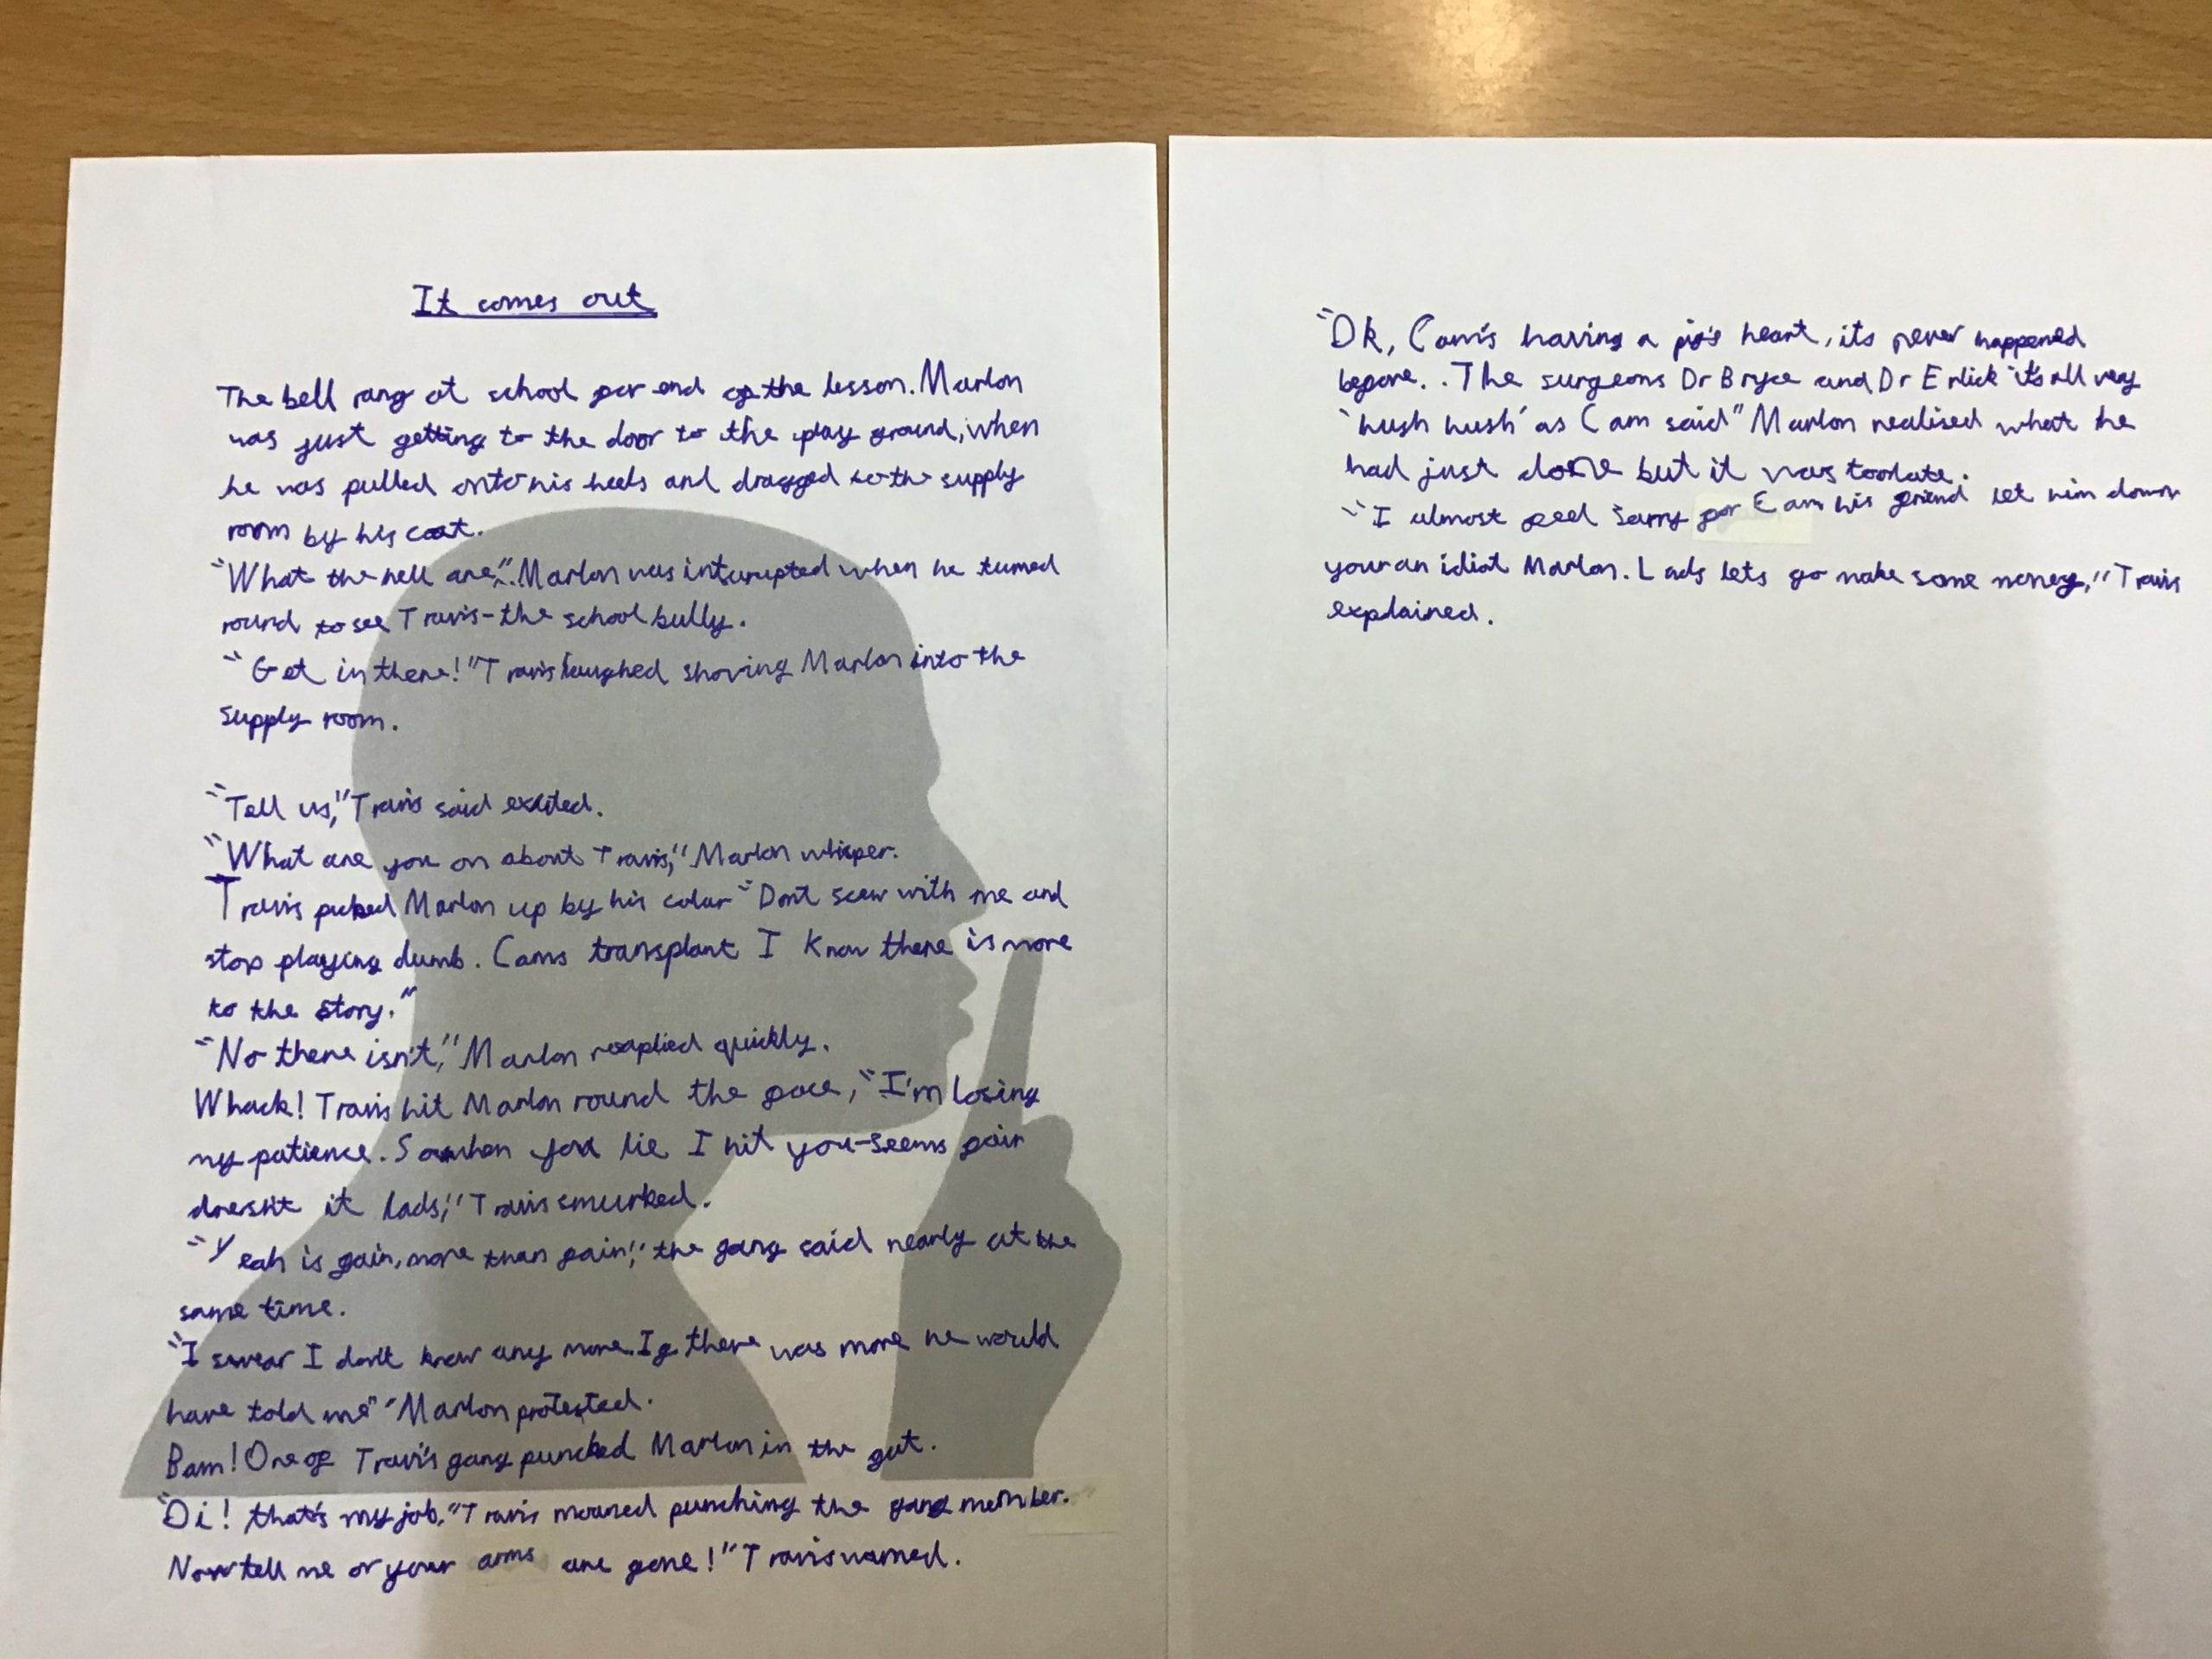 It comes out
The bell rang at school for end of the lesson. Marlon
was just getting to the door to the play ground, when
he was pulled onto his heels and dragged to the supply
room by his coat.
"What the hell are," Marlon was inturupted when he turned
round to see Travis - the school bully.
"Get in there!" Travis laughed shoving Marlon into the
supply room.
"Tell us," Travis said excited.
"What are you on about Travis," Marlon whisper.
Travis picked Marlon up by his colar "Dont scew with me and
stop playing dumb. Cams transplant I know there is more
to the story."
"No there isn't," Marlon reaplied quickly.
Whack! Travis hit Marlon round the face, "I'm losing
my patience. So when you lie I hit you - seems fair
doesn't it lads," Travis smurked.
"Yeah is fair, more than fair," the gang said nearly at the
same time.
"I swear I don't know any more. If there was more he would
have told me" Marlon protested.
Bam! One of Travis gang punched Marlon in the gut.
"Oi! that's my job," Travis moaned punching the gang member.
Now tell me or your arms are gone!" Travis warned.
"Ok, Cam's having a pig's heart, its never happened
before. . The surgeons Dr Bryce and Dr Erlick it's all very
'hush hush' as Cam said" Marlon realised what he
had just done but it was too late.
"I almost feel sorry for Cam his friend let him down
your an idiot Marlon. Lads lets go make some money," Travis
explained.